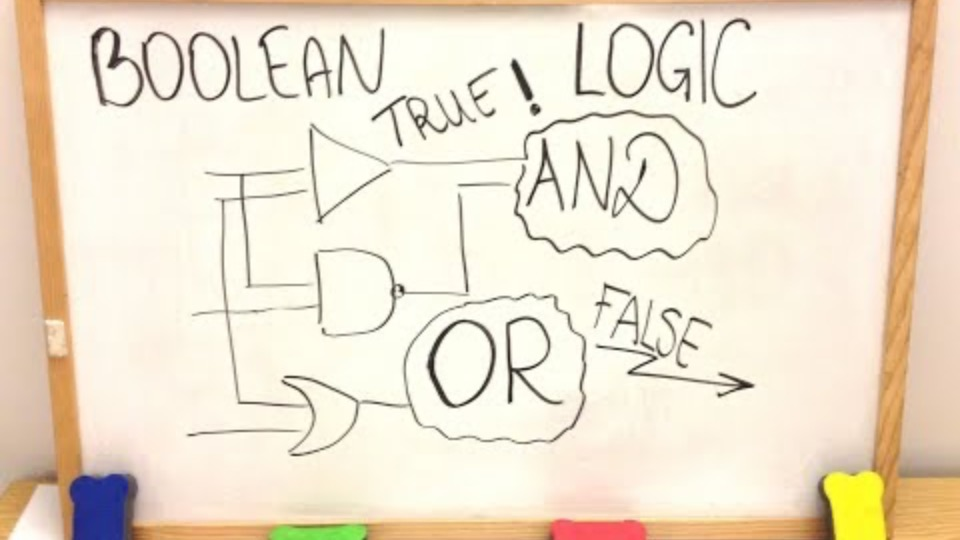 BOOLEAN LOGIC
TRUE!
AND
FALSE
OR